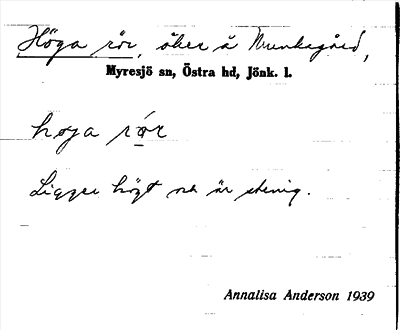 Höga rör, åker å Munkagård,
Myresjö sn, Östra hd, Jönk. l.
höga rör
Ligger högt och är stenig.
Annalisa Anderson 1939